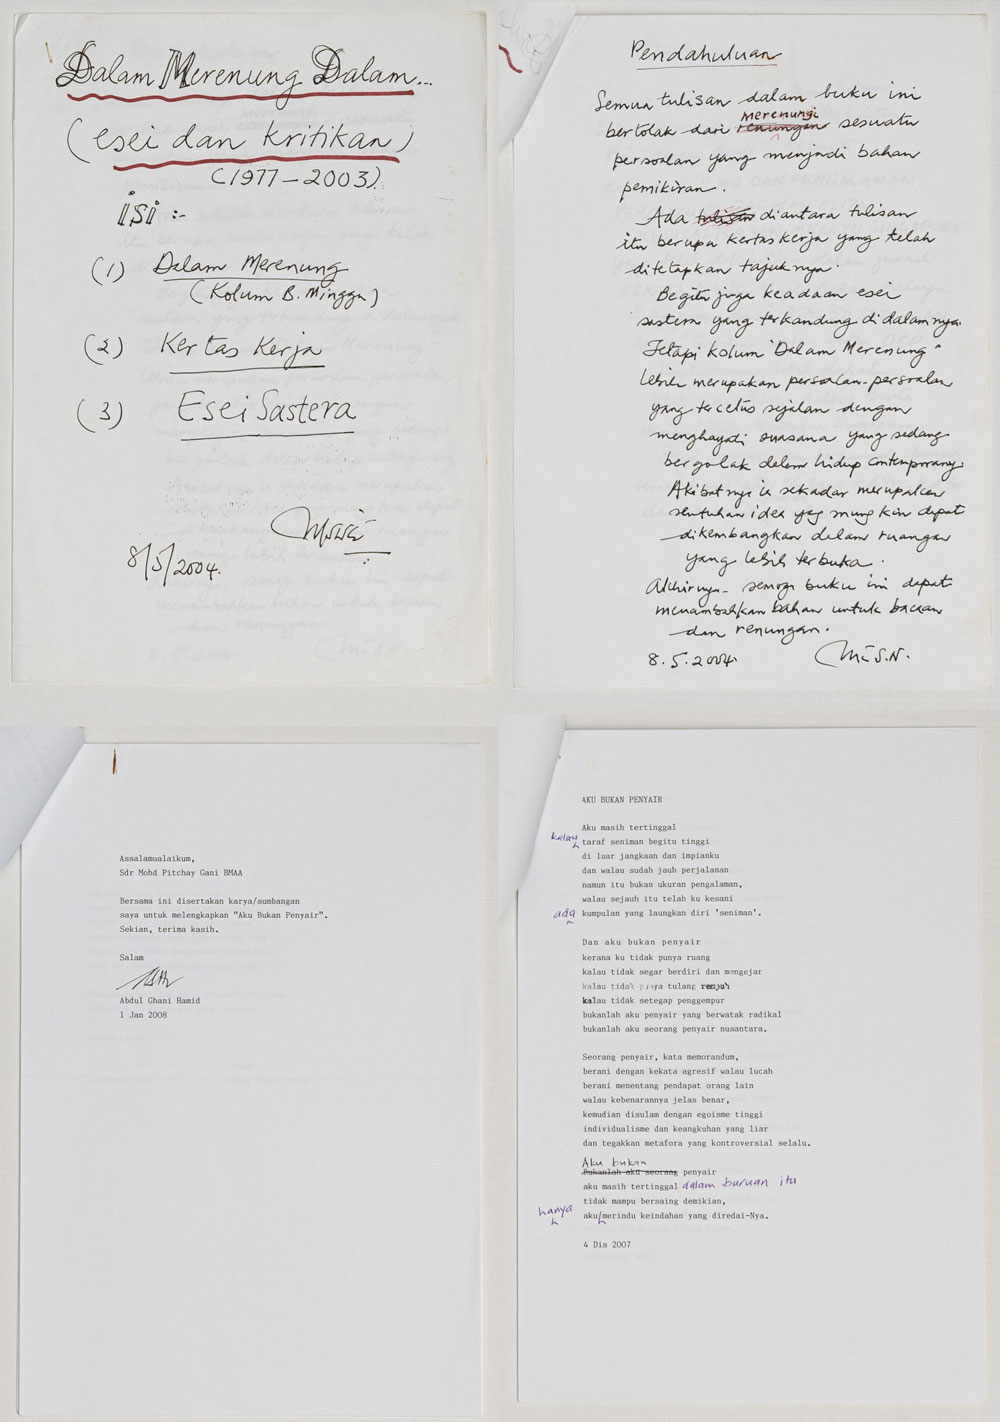 Dalam Merenung Dalam...
(esei dan kritikan)
(1977-2003)
isi :-
(1) Dalam Merenung
(Kolum B. Minggu)
(2) Kertas Kerja
(3) Esei Sastera
8/5/2004.
Pendahuluan
Semua tulisan dalam buku ini
merenungi
bertolak dari renungan sesuatu
persoalan yang menjadi bahan
pemikiran.
Ada tulisan diantara tulisan
itu berupa kertas kerja yang telah
ditetapkan tajuknya.
Begitu juga keadaan esei
sastera yang terkandung di dalamnya.
Tetapi kolum "Dalam Merenung"
lebih merupakan persoalan-persoalan
yang tercetus sejalan dengan
menghayati suasana yang sedang
bergolak dalam hidup contemporary.
Akibatnya ia sekadar merupakan
sentuhan idea yag mungkin dapat
dikembangkan dalam ruangan
yang lebih terbuka.
Akhirnya semoga buku ini dapat
menambahkan bahan untuk bacaan
dan renungan.
8.5.2004.
Assalamualaikum,
Sdr Mohd Pitchay Gani BMAA
Bersama ini disertakan karya/sumbangan
saya untuk melengkapkan "Aku Bukan Penyair".
Sekian, terima kasih.
Salam
Abdul Ghani Hamid
1 Jan 2008
AKU BUKAN PENYAIR
Aku masih tertinggal
kalau taraf seniman begitu tinggi
di luar jangkaan dan impianku
dan walau sudah jauh perjalanan
namun itu bukan ukuran pengalaman,
walau sejauh itu telah ku kesani
ada kumpulan yang laungkan diri 'seniman'.
Dan aku bukan penyair
kerana ku tidak punya ruang
kalau tidak segar berdiri dan mengejar
kalau tidak punya tulang rempuh
kalau tidak setegap penggempur
bukanlah aku penyair yang berwatak radikal
bukanlah aku seorang penyair nusantara.
Seorang penyair, kata memorandum,
berani dengan kekata agresif walau lucah
berani menentang pendapat orang lain
walau kebenarannya jelas benar,
kemudian disulam dengan egoisme tinggi
individualisme dan keangkuhan yang liar
dan tegakkan metafora yang kontroversial selalu.
Aku bukan
Bukanlah aku seorang penyair
aku masih tertinggal dalam buruan itu
tidak mampu bersaing demikian,
hanya aku merindu keindahan yang diredai-Nya.
4 Dis 2007